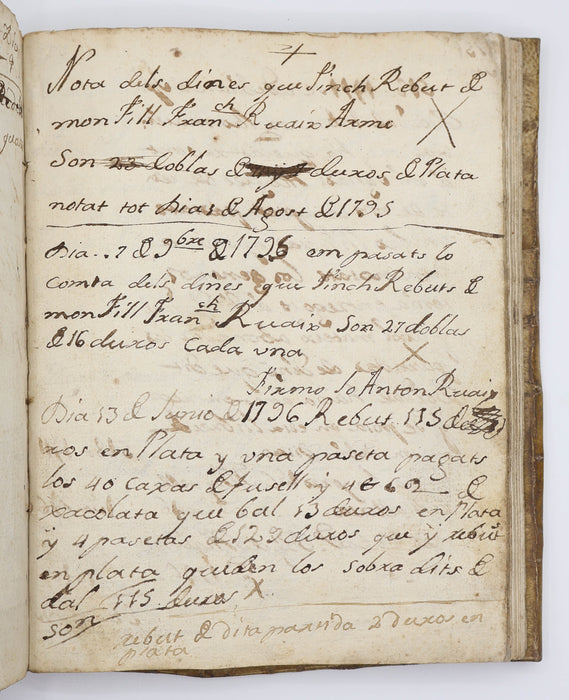 Nota dels dines que tinch Rebut de
mon Fill Fran.ch Ruaix Arme
Son 23 doblas de duros de Plata
notat tot Dia 1 de Agost de 1795
Dia .. 7 de 9bre de 1796 em pasats lo
comta dels dines que tinch Rebuts de
mon Fill Fran.ch Ruaix Son 27 doblas
de 16 duros cada vna
Firmo Jo Anton Ruaix
Dia 13 de Junio de 1796 Rebut 115 de
ros en Plata y vna paseta pagats
los 40 caxas de fusell y 4 de
xacolata que bal 13 duros en Plata
y 4 pasetas de 129 duros que y
en plata queden los sobra dits de
dal 115 duros X
son
rebut de dita partida 2 duros en
plata